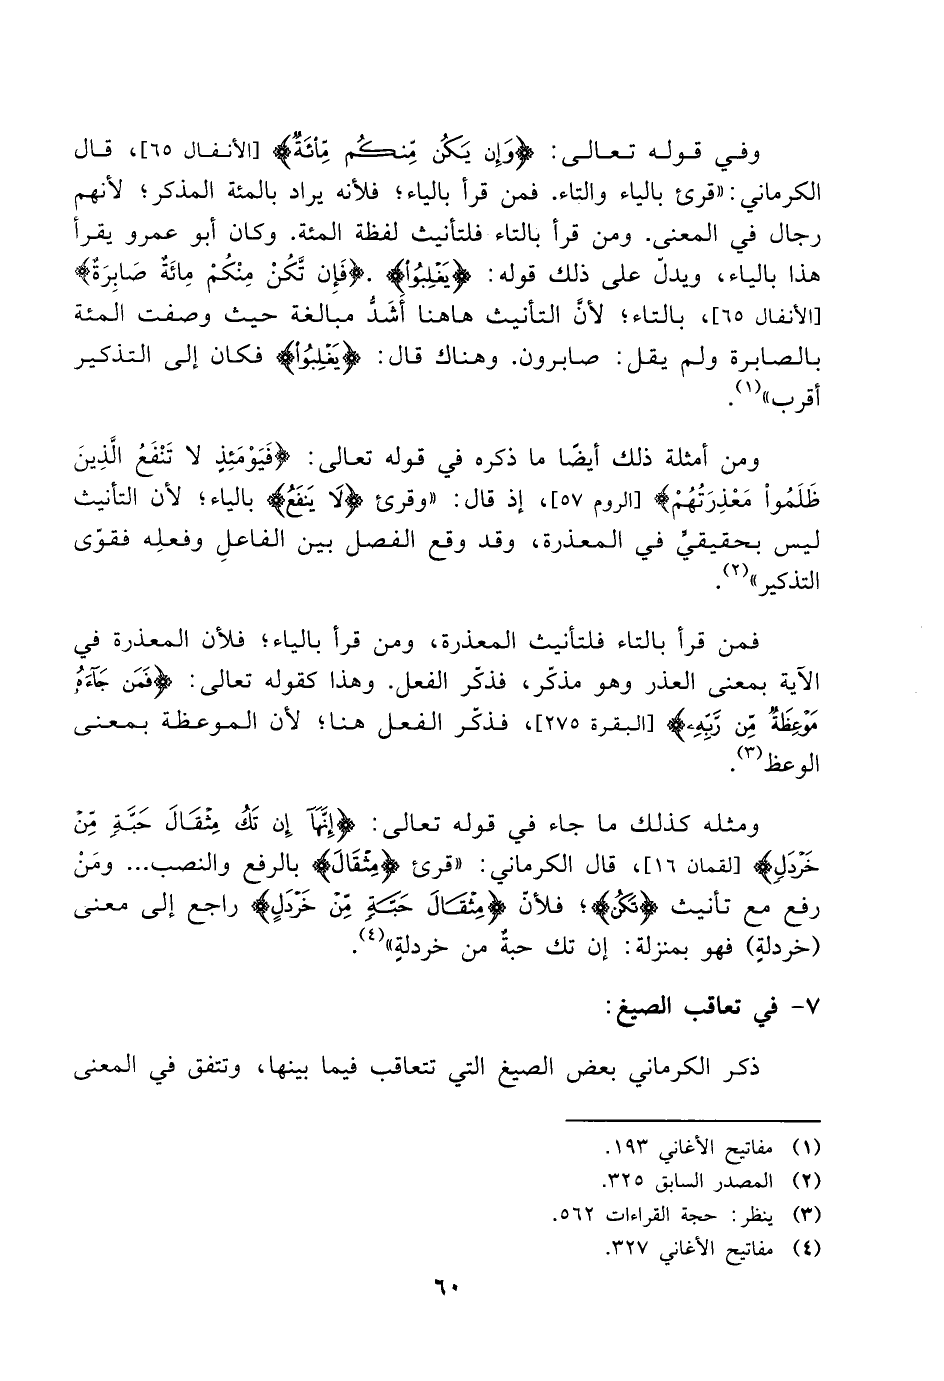 وفي قوله تعالى: ﴿وَإِن يَكُن مِّنكُم مِّائَةٌ﴾ [الأنفال ٦٥]، قال
الكرماني: «قرئ بالياء والتاء. فمن قرأ بالياء؛ فلأنه يراد بالمئة المذكر؛ لأنهم
رجال في المعنى. ومن قرأ بالتاء فلتأنيث لفظة المئة. وكان أبو عمرو يقرأ
هذا بالياء، ويدلّ على ذلك قوله: ﴿يَغْلِبُوا﴾ .﴿فَإِن تَّكُنْ مِنْكُمْ مِائَةٌ صَابِرَةٌ﴾
[الأنفال ٦٥]، بالتاء؛ لأنَّ التأنيث هاهنا أَشَدُّ مبالغة حيث وصفت المئة
بالصابرة ولم يقل: صابرون. وهناك قال: ﴿يَغْلِبُوا﴾ فكان إلى التذكير
أقرب»(١).
ومن أمثلة ذلك أيضًا ما ذكره في قوله تعالى: ﴿فَيَوْمَئِذٍ لا تَنْفَعُ الَّذِينَ
ظَلَمُواْ مَعْذِرَتُهُمْ﴾ [الروم ٥٧]، إذ قال: «وقرئ ﴿لَا يَنفَعُ﴾ بالياء؛ لأن التأنيث
ليس بحقيقيٍّ في المعذرة، وقد وقع الفصل بين الفاعلِ وفعلِه فقوّى
التذكير»(٢).
فمن قرأ بالتاء فلتأنيث المعذرة، ومن قرأ بالياء؛ فلأن المعذرة في
الآية بمعنى العذر وهو مذكّر، فذكّر الفعل. وهذا كقوله تعالى: ﴿فَمَن جَآءَهُۥ
مَوْعِظَةٌ مِّن رَّبِّهِۦ﴾ [البقرة ٢٧٥]، فذكّر الفعل هنا؛ لأن الموعظة بمعنى
الوعظ(٣).
ومثله كذلك ما جاء في قوله تعالى: ﴿إِنَّهَآ إِن تَكُ مِثْقَالَ حَبَّةٍ مِّنْ
خَرْدَلٍ﴾ [لقمان ١٦]، قال الكرماني: «قرئ ﴿مِثْقَالَ﴾ بالرفع والنصب... ومَنْ
رفع مع تأنيث ﴿تَكُن﴾؛ فلأنّ ﴿مِثْقَالَ حَبَّةٍ مِّنْ خَرْدَلٍ﴾ راجع إلى معنى
(خردلةٍ) فهو بمنزلة: إن تك حبةٌ من خردلةٍ»(٤).
٧- في تعاقب الصيغ:
ذكر الكرماني بعض الصيغ التي تتعاقب فيما بينها، وتتفق في المعنى
(١) مفاتيح الأغاني ١٩٣.
(٢) المصدر السابق ٣٢٥.
(٣) ينظر: حجة القراءات ٥٦٢.
(٤) مفاتيح الأغاني ٣٢٧.
٦٠